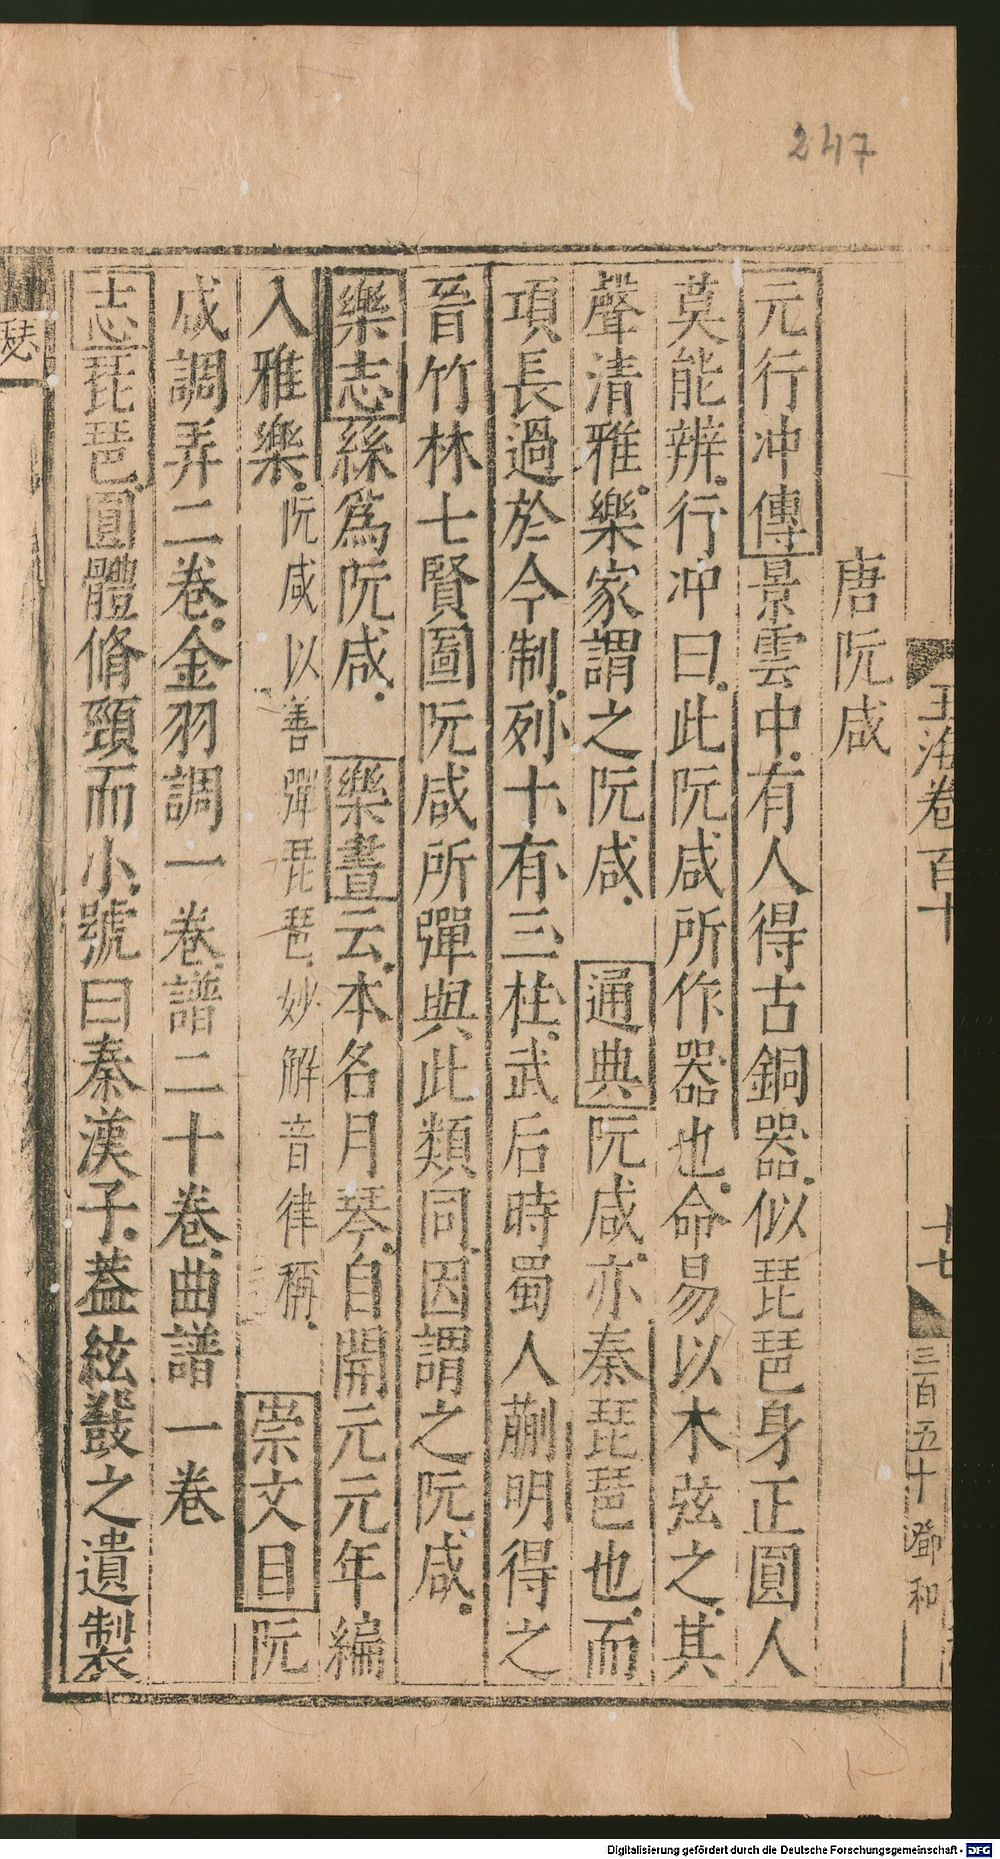 247
玉海卷百十
十七
三百五十
鄧和
唐阮咸
元行冲傳景雲中有人得古銅器似琵琶身正圓人
莫能辨行冲曰此阮咸所作器也命易以木弦之其
聲清雅樂家謂之阮咸 通典阮咸亦秦琵琶也而
項長過於今制列十有三柱武后時蜀人蒯明得之
晉竹林七賢圖阮咸所彈與此類同因謂之阮咸
樂志絲爲阮咸 樂書云本名月琴自開元元年編
入雅樂阮咸以善彈琵琶妙解音律稱 崇文目阮
咸調弄二卷金羽調一卷譜二十卷曲譜一卷
志琵琶圓體脩頸而小號曰秦漢子蓋絃鼗之遺製
瑟
Digitalisierung gefördert durch die Deutsche Forschungsgemeinschaft - DFG